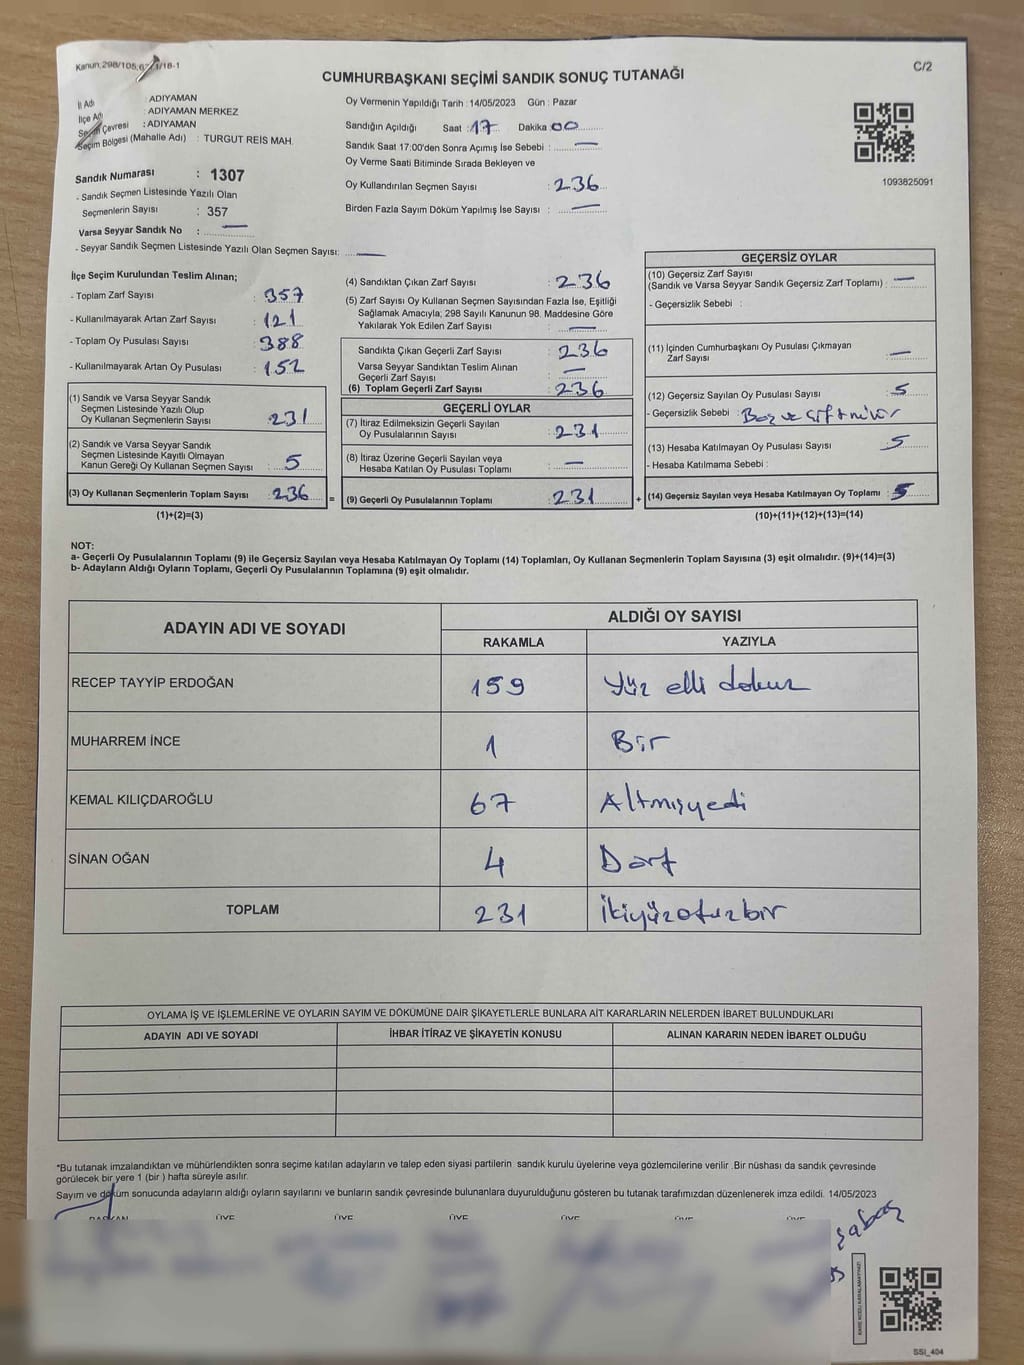 Kanun:298/105,67/1/18-1
C/2
CUMHURBAŞKANI SEÇİMİ SANDIK SONUÇ TUTANAĞI
İl Adı : ADIYAMAN
İlçe Adı : ADIYAMAN MERKEZ
Seçim Çevresi : ADIYAMAN
Seçim Bölgesi (Mahalle Adı) : TURGUT REİS MAH.
Sandık Numarası : 1307
- Sandık Seçmen Listesinde Yazılı Olan
Seçmenlerin Sayısı : 357
Varsa Seyyar Sandık No : —
- Seyyar Sandık Seçmen Listesinde Yazılı Olan Seçmen Sayısı: —
Oy Vermenin Yapıldığı Tarih : 14/05/2023 Gün : Pazar
Sandığın Açıldığı Saat : 17 Dakika : 00
Sandık Saat 17:00'den Sonra Açımış İse Sebebi : —
Oy Verme Saati Bitiminde Sırada Bekleyen ve
Oy Kullandırılan Seçmen Sayısı : 236
Birden Fazla Sayım Döküm Yapılmış İse Sayısı : —
1093825091
İlçe Seçim Kurulundan Teslim Alınan;
- Toplam Zarf Sayısı : 357
- Kullanılmayarak Artan Zarf Sayısı : 121
- Toplam Oy Pusulası Sayısı : 388
- Kullanılmayarak Artan Oy Pusulası : 152
(1) Sandık ve Varsa Seyyar Sandık
Seçmen Listesinde Yazılı Olup
Oy Kullanan Seçmenlerin Sayısı : 231
(2) Sandık ve Varsa Seyyar Sandık
Seçmen Listesinde Kayıtlı Olmayan
Kanun Gereği Oy Kullanan Seçmen Sayısı : 5
(3) Oy Kullanan Seçmenlerin Toplam Sayısı : 236
(1)+(2)=(3)
=
(4) Sandıktan Çıkan Zarf Sayısı : 236
(5) Zarf Sayısı Oy Kullanan Seçmen Sayısından Fazla İse, Eşitliği
Sağlamak Amacıyla; 298 Sayılı Kanunun 98. Maddesine Göre
Yakılarak Yok Edilen Zarf Sayısı : —
Sandıkta Çıkan Geçerli Zarf Sayısı : 236
Varsa Seyyar Sandıktan Teslim Alınan
Geçerli Zarf Sayısı : —
(6) Toplam Geçerli Zarf Sayısı : 236
GEÇERLİ OYLAR
(7) İtiraz Edilmeksizin Geçerli Sayılan
Oy Pusulalarının Sayısı : 231
(8) İtiraz Üzerine Geçerli Sayılan veya
Hesaba Katılan Oy Pusulası Toplamı : —
(9) Geçerli Oy Pusulalarının Toplamı : 231
+
GEÇERSİZ OYLAR
(10) Geçersiz Zarf Sayısı
(Sandık ve Varsa Seyyar Sandık Geçersiz Zarf Toplamı) : —
- Geçersizlik Sebebi :
(11) İçinden Cumhurbaşkanı Oy Pusulası Çıkmayan
Zarf Sayısı : —
(12) Geçersiz Sayılan Oy Pusulası Sayısı : 5
- Geçersizlik Sebebi : Boş ve çift mühür
(13) Hesaba Katılmayan Oy Pusulası Sayısı : 5
- Hesaba Katılmama Sebebi :
(14) Geçersiz Sayılan veya Hesaba Katılmayan Oy Toplamı : 5
(10)+(11)+(12)+(13)=(14)
NOT:
a- Geçerli Oy Pusulalarının Toplamı (9) ile Geçersiz Sayılan veya Hesaba Katılmayan Oy Toplamı (14) Toplamları, Oy Kullanan Seçmenlerin Toplam Sayısına (3) eşit olmalıdır. (9)+(14)=(3)
b- Adayların Aldığı Oyların Toplamı, Geçerli Oy Pusulalarının Toplamına (9) eşit olmalıdır.
ADAYIN ADI VE SOYADI
ALDIĞI OY SAYISI
RAKAMLA YAZIYLA
RECEP TAYYİP ERDOĞAN 159 Yüz elli dokuz
MUHARREM İNCE 1 Bir
KEMAL KILIÇDAROĞLU 67 Altmışyedi
SİNAN OĞAN 4 Dört
TOPLAM 231 İkiyüzotuzbir
OYLAMA İŞ VE İŞLEMLERİNE VE OYLARIN SAYIM VE DÖKÜMÜNE DAİR ŞİKAYETLERLE BUNLARA AİT KARARLARIN NELERDEN İBARET BULUNDUKLARI
ADAYIN ADI VE SOYADI İHBAR İTİRAZ VE ŞİKAYETİN KONUSU ALINAN KARARIN NEDEN İBARET OLDUĞU
*Bu tutanak imzalandıktan ve mühürlendikten sonra seçime katılan adayların ve talep eden siyasi partilerin sandık kurulu üyelerine veya gözlemcilerine verilir .Bir nüshası da sandık çevresinde
görülecek bir yere 1 (bir ) hafta süreyle asılır.
Sayım ve döküm sonucunda adayların aldığı oyların sayılarını ve bunların sandık çevresinde bulunanlara duyurulduğunu gösteren bu tutanak tarafımızdan düzenlenerek imza edildi. 14/05/2023
BAŞKAN ÜYE ÜYE ÜYE ÜYE ÜYE ÜYE
SSI_404